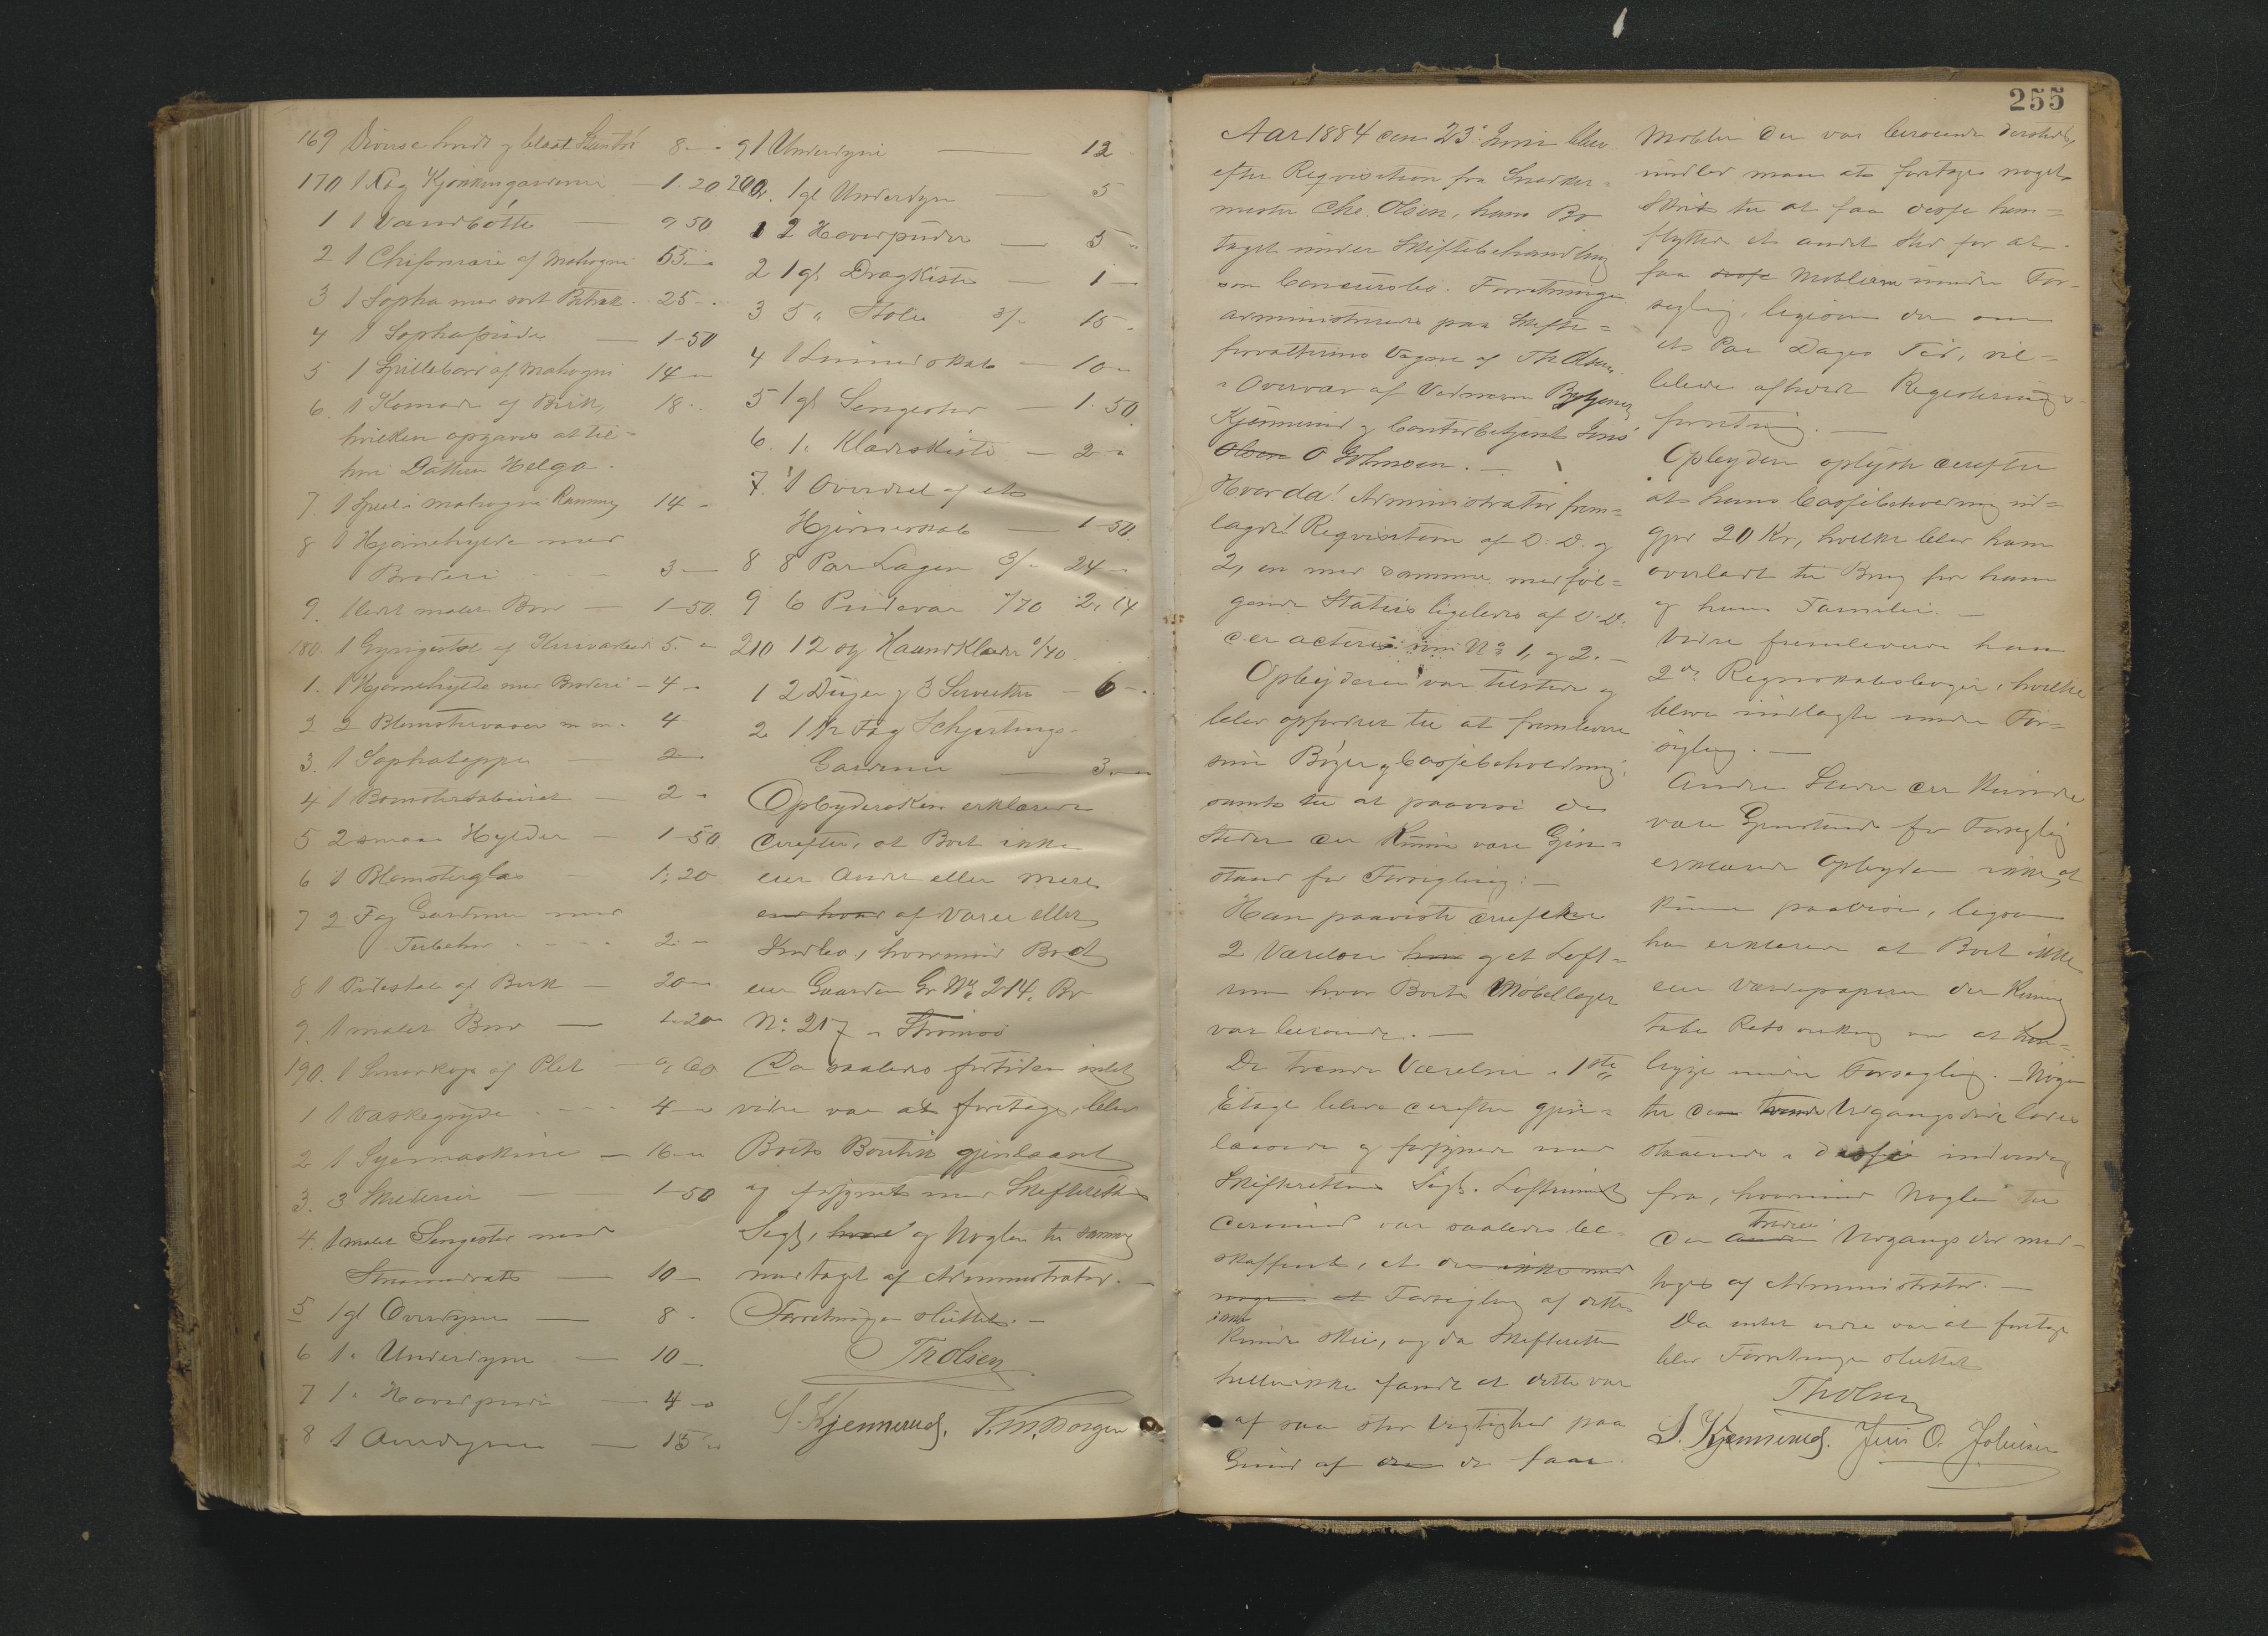 169 Diverse hvidt og blaat Stentöi 8 "
170 1 Fag Kjökkengardiner 1. 20
1 1 Vandbötte " 50
2 1 Chifoniere af Mahogni 55 "
3 1 Sopha med sort Betræk 25 "
4 1 Sophapude 1-50
5 1 Spillebord af Mahogni 14 "
6. 1 Komode af Birk, 18 "
hvilken opgaves at til=
höre Datteren Helga.
7. 1 Speil i Mahogni Ramme 14 "
8 1 Hjörnehylde med
Broderi 3 "
9. 1 lidet malet Bord 1-50
180 1 Gyngestol af Kurvarbeid 5. "
1. 1 Hjörnehylde med Broderi 4 "
2 2 Blomstervaser m. m. 4
3. 1 Sophateppe 2 "
4 1 Blomstertaburet 2 "
5 2 smaa Hylder 1-50
6 1 Blomsterglas 1, 20
7 2 Fag Gardiner med
Tilbehör 2. "
8 1 Pidestal af Birk 20 "
9. 1 malet Bord 1-20
190. 1 Smörkop af Plet " 60
1 1 Vaskegryde 4 "
2 1 Syemaskine 16 "
3. 3 Skilderier 1-50
4. 1 malet Sengested med
Straamadrats 10
5 1 gl Overdyne 8
6 1 " Underdyne 10
7 1 " Hovedpude 4 "
8 1 Overdyne 15 "
9 1 Underdyne 12
200. 1 gl Underdyne 5
1 2 Hovedpuder 5 "
2 1 gl Dragkiste 1
3 5 " Stole 3/- 15
4 1 Linnedskab 10 "
5 1 gl Sengested 1. 50
6. 1 " Klædeskiste 2 "
7. 1 Overdel af et
Hjörneskab 1-50
8 8 Par Lagen 3/- 24
9 6 Pudevar 2,
210 12 og Haandklæder /40
1 2 Duger og 3 Servietter 6 "
2. 1 Fag Schjertings-
Gardiner 3. "
Opbyderskens erklærede
derefter, at Boet ikke
eier Andet eller mere
end hvad af Varer eller
Indbo, hvorimod Boet
eier Gaarden Gr. No 214. Br
No. 217 i Strömsö
Da saaledes fortiden intet
videre var at foretage, blev
Boets Boutik gjenlaaset
og forsynet med Skifterettens
Segl, hvad og Nöglen til samme
medtaget af Administrator.
Forretningen sluttet.
Th Olsen
S. Kjennerud. Borgen
255
Aar 1884 den 23de Juni blev
efter Reqvisition fra Snedker=
mester Chr. Olsen, hans Bo
taget under Skiftebehandling
som Concursbo. Forretningen
administreredes paa Skifte=
forvalterens Vegne af Th Olsen
i Overvær af Vidnerne
Kjennerud og Contorbetjent Jens
Olsen O Johnsen.
Hvorda! Administrator frem=
lagde! Reqvisition af D. D. og
2, en med samme medföl=
gende Status ligeledes af D. D.
der acteres som No 1, og 2.
Opbyderen var tilstede og
blev opfordret til at fremlevere
sine Böger og Cassebeholdning,
samt til at paavise de
Steder der kunne være Gjen=
stand for Forsegling.
Han paaviste derefter
2 Værelser og et Loft=
rum hvor Boets Möbellager
var beroende.
De tvende Værelser i 1ste
Etage bleve derefter gjen=
laasede og forsynede med
Skifterettens Segl. Loftrummet
derimod var saaledes be-
skaffent, at der ikke med
nogen at Forsegling af dette
ikke
kunde skee, og da Skifteretten
hellerikke fandt at dette var
af saa stor Vigtighed paa
Grund af de faae
Möbler der var beroende dersteds,
undlod man at foretage noget
Skrit til at faa disse hen=
flyttede et andet Sted for at
faa disse Möblerne under For-
segling, ligesom der om
et Par Dages Tid, vil
blive afholdt Registerings=
forretning.
Opbyderen oplyste derefter
at hans Cassebeholdning ud=
gjör 20 Kr, hvilke blev ham
overladt til Brug for ham
og hans Familie.
Videre fremleverede han
2de Regnskabsböger, hvilke
bleve indlagte under For=
segling.
Andre Steder der kunde
være Gjenstand for Forsegling
erklærede Opbyderen ikke at
kunne paavise, ligesom
han erklærede at Boet ikke
eier Værdipapirer der kunne
at hen=
ligge under Forsegling. Nögen
til den tvende Udgangsdöre lodes
staaende i disse indvendig
fra, hvorimod Nöglen til
tredie
den anden Udgangsdör med-
toges af Administrator.
Da intet videre var at foretage
blev Forretningen sluttet
Th Olsen
S. Kjennerud. Jens O. Johnsen